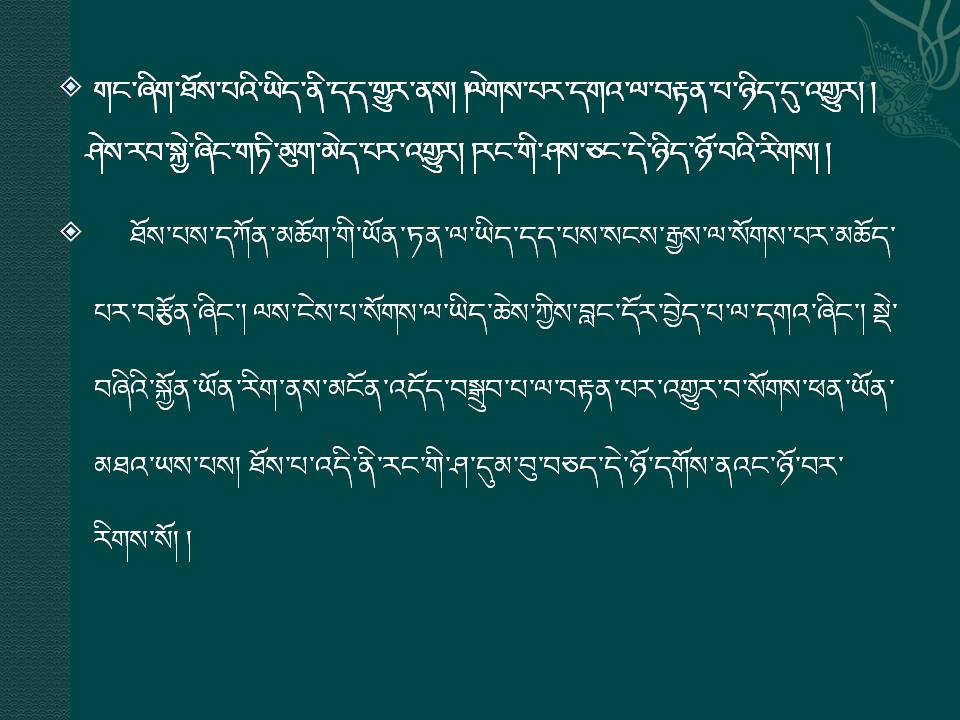 གང་ཞིག་ཐོས་པའི་ཡིད་ནི་དད་གྱུར་ནས། །ལེགས་པར་དགའ་ལ་བརྟན་པ་ཉིད་དུ་འགྱུར། །
ཤེས་རབ་སྐྱེ་ཞིང་གཏི་མུག་མེད་པར་འགྱུར། །རང་གི་ཤས་ཅང་དེ་ཉིད་ཉོ་བའི་རིགས། །
ཐོས་པས་དཀོན་མཆོག་གི་ཡོན་ཏན་ལ་ཡིད་དད་པས་སངས་རྒྱས་ལ་སོགས་པར་མཆོད་
པར་བརྩོན་ཞིང་། ལས་ངེས་པ་སོགས་ལ་ཡིད་ཆེས་ཀྱིས་བླང་དོར་བྱེད་པ་ལ་དགའ་ཞིང་། སྡེ་
བཞིའི་སྐྱོན་ཡོན་རིག་ནས་མངོན་འདོད་བསྒྲུབ་པ་ལ་བརྟན་པར་འགྱུར་བ་སོགས་ཕན་ཡོན་
མཐའ་ཡས་པས། ཐོས་པ་འདི་ནི་རང་གི་ཤ་དུམ་བུ་བཅད་དེ་ཉོ་དགོས་ནའང་ཉོ་བར་
རིགས་སོ། །